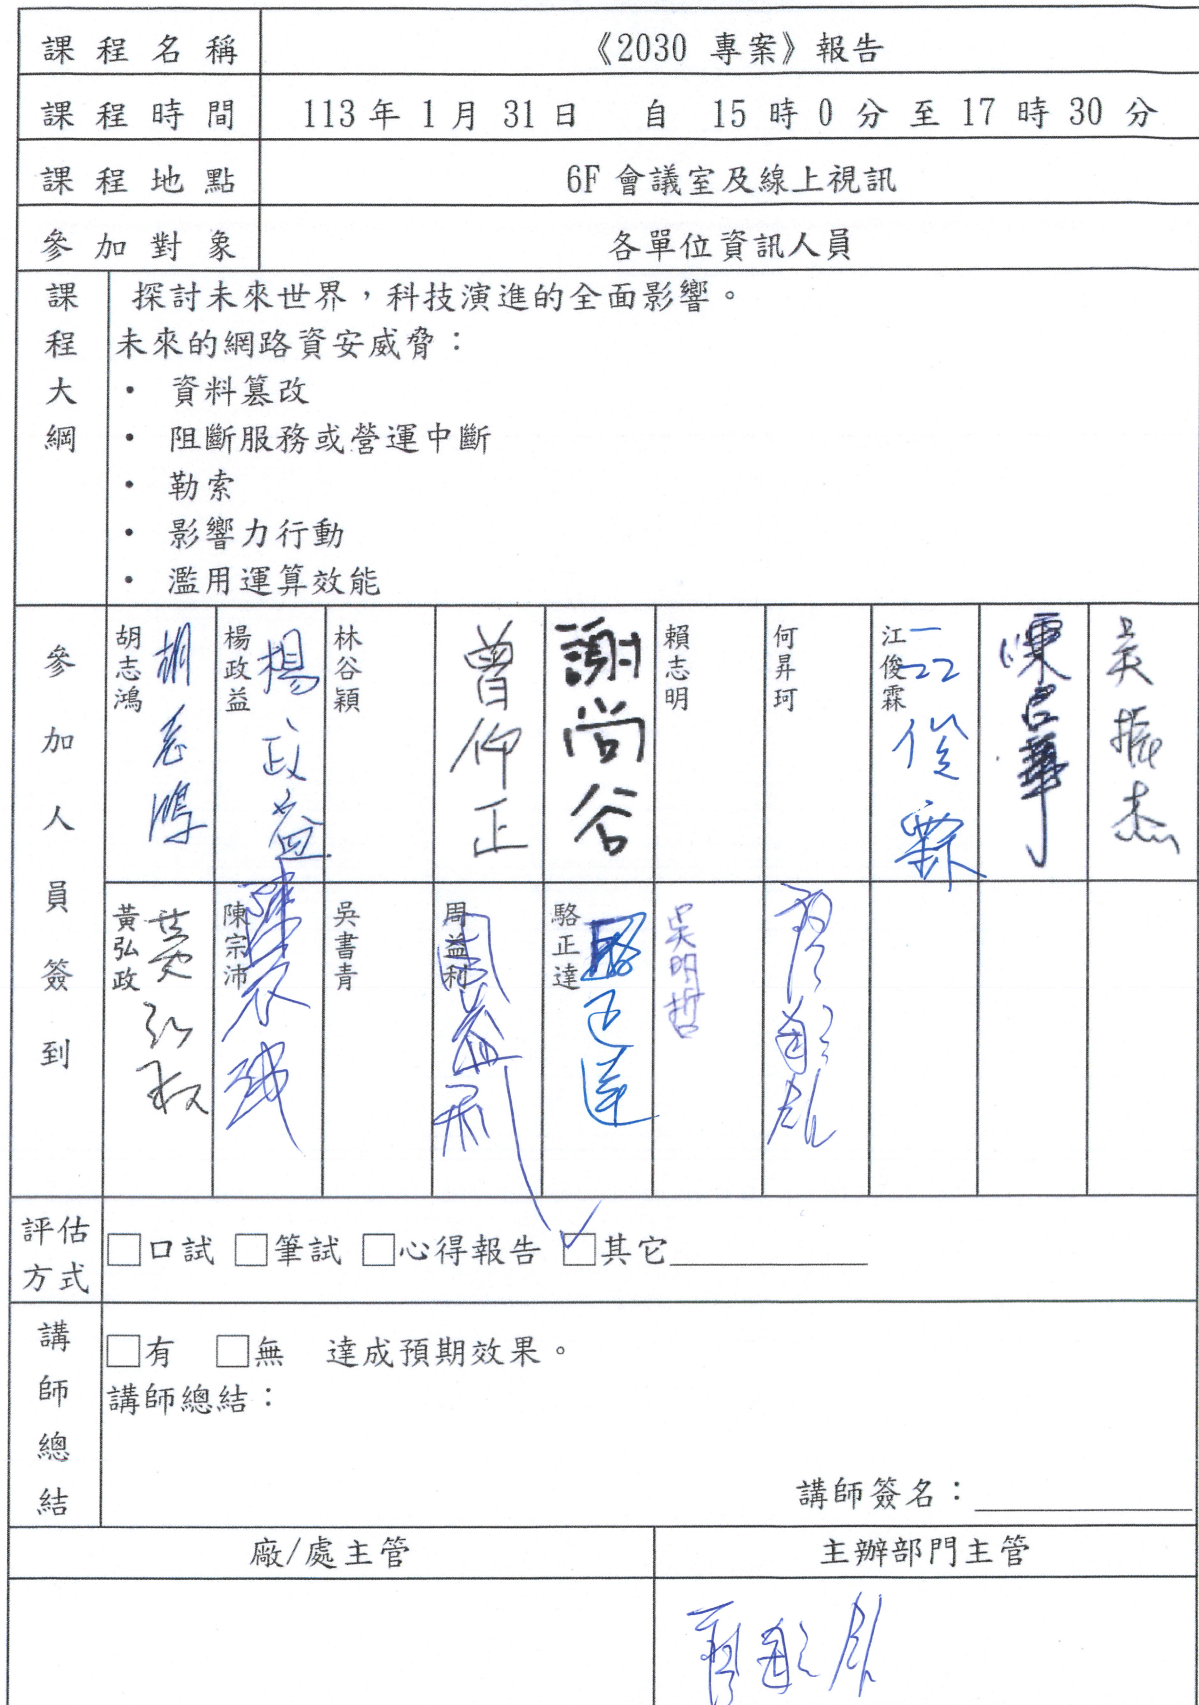 課程名稱 《2030 專案》報告
課程時間 113年 1 月 31 日 自 15 時 0 分 至 17 時 30 分
課程地點 6F 會議室及線上視訊
參加對象 各單位資訊人員
課程大綱
探討未來世界，科技演進的全面影響。
未來的網路資安威脅：
• 資料篡改
• 阻斷服務或營運中斷
• 勒索
• 影響力行動
• 濫用運算效能
參加人員簽到
胡志鴻 胡志鴻
楊政益 楊政益
林谷穎
曾仰正
謝尚谷
賴志明
何昇珂
江俊霖 江俊霖
吳振杰
黃弘政 黃弘政
陳宗沛 陳宗沛
吳書青
周益利 周益利
駱正達 駱正達
吳明哲
評估方式
□口試 □筆試 □心得報告 ☑其它
講師總結
□有 □無 達成預期效果。
講師總結：
講師簽名：
廠/處主管 主辦部門主管